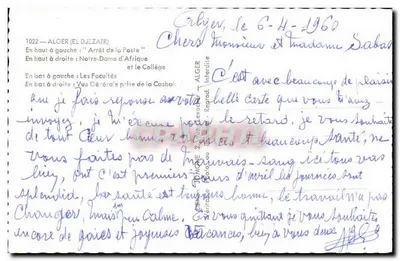 Alger, le 6-4-1960
1022 - ALGER (EL DJEZAIR)
En haut à gauche : "Arrêt de la Poste"
En haut à droite : Notre-Dame d'Afrique
et le Collège
En bas à gauche : Les Facultés
En bas à droite : Vue Générale prise de la Casbah
Chers Monsieur et madame
C'est avec beaucoup de plaisir
que je fais réponse a votre belle carte que vous
envoyer, je m'excuse pour le retard, je vous souhaite
de tout Cœur bonne et beaucoup Santé, ne
vous faites pas de mauvais-sang ici tous vas
bien, c'est premiers jours d'avril les journées sont
splendid, santé est toujours bonne, le travail n'a pas
Changer, mais Calme. En vous quittant je vous souhaite
encore de gaies et joyeuses vacances, a vous deux
ALGER